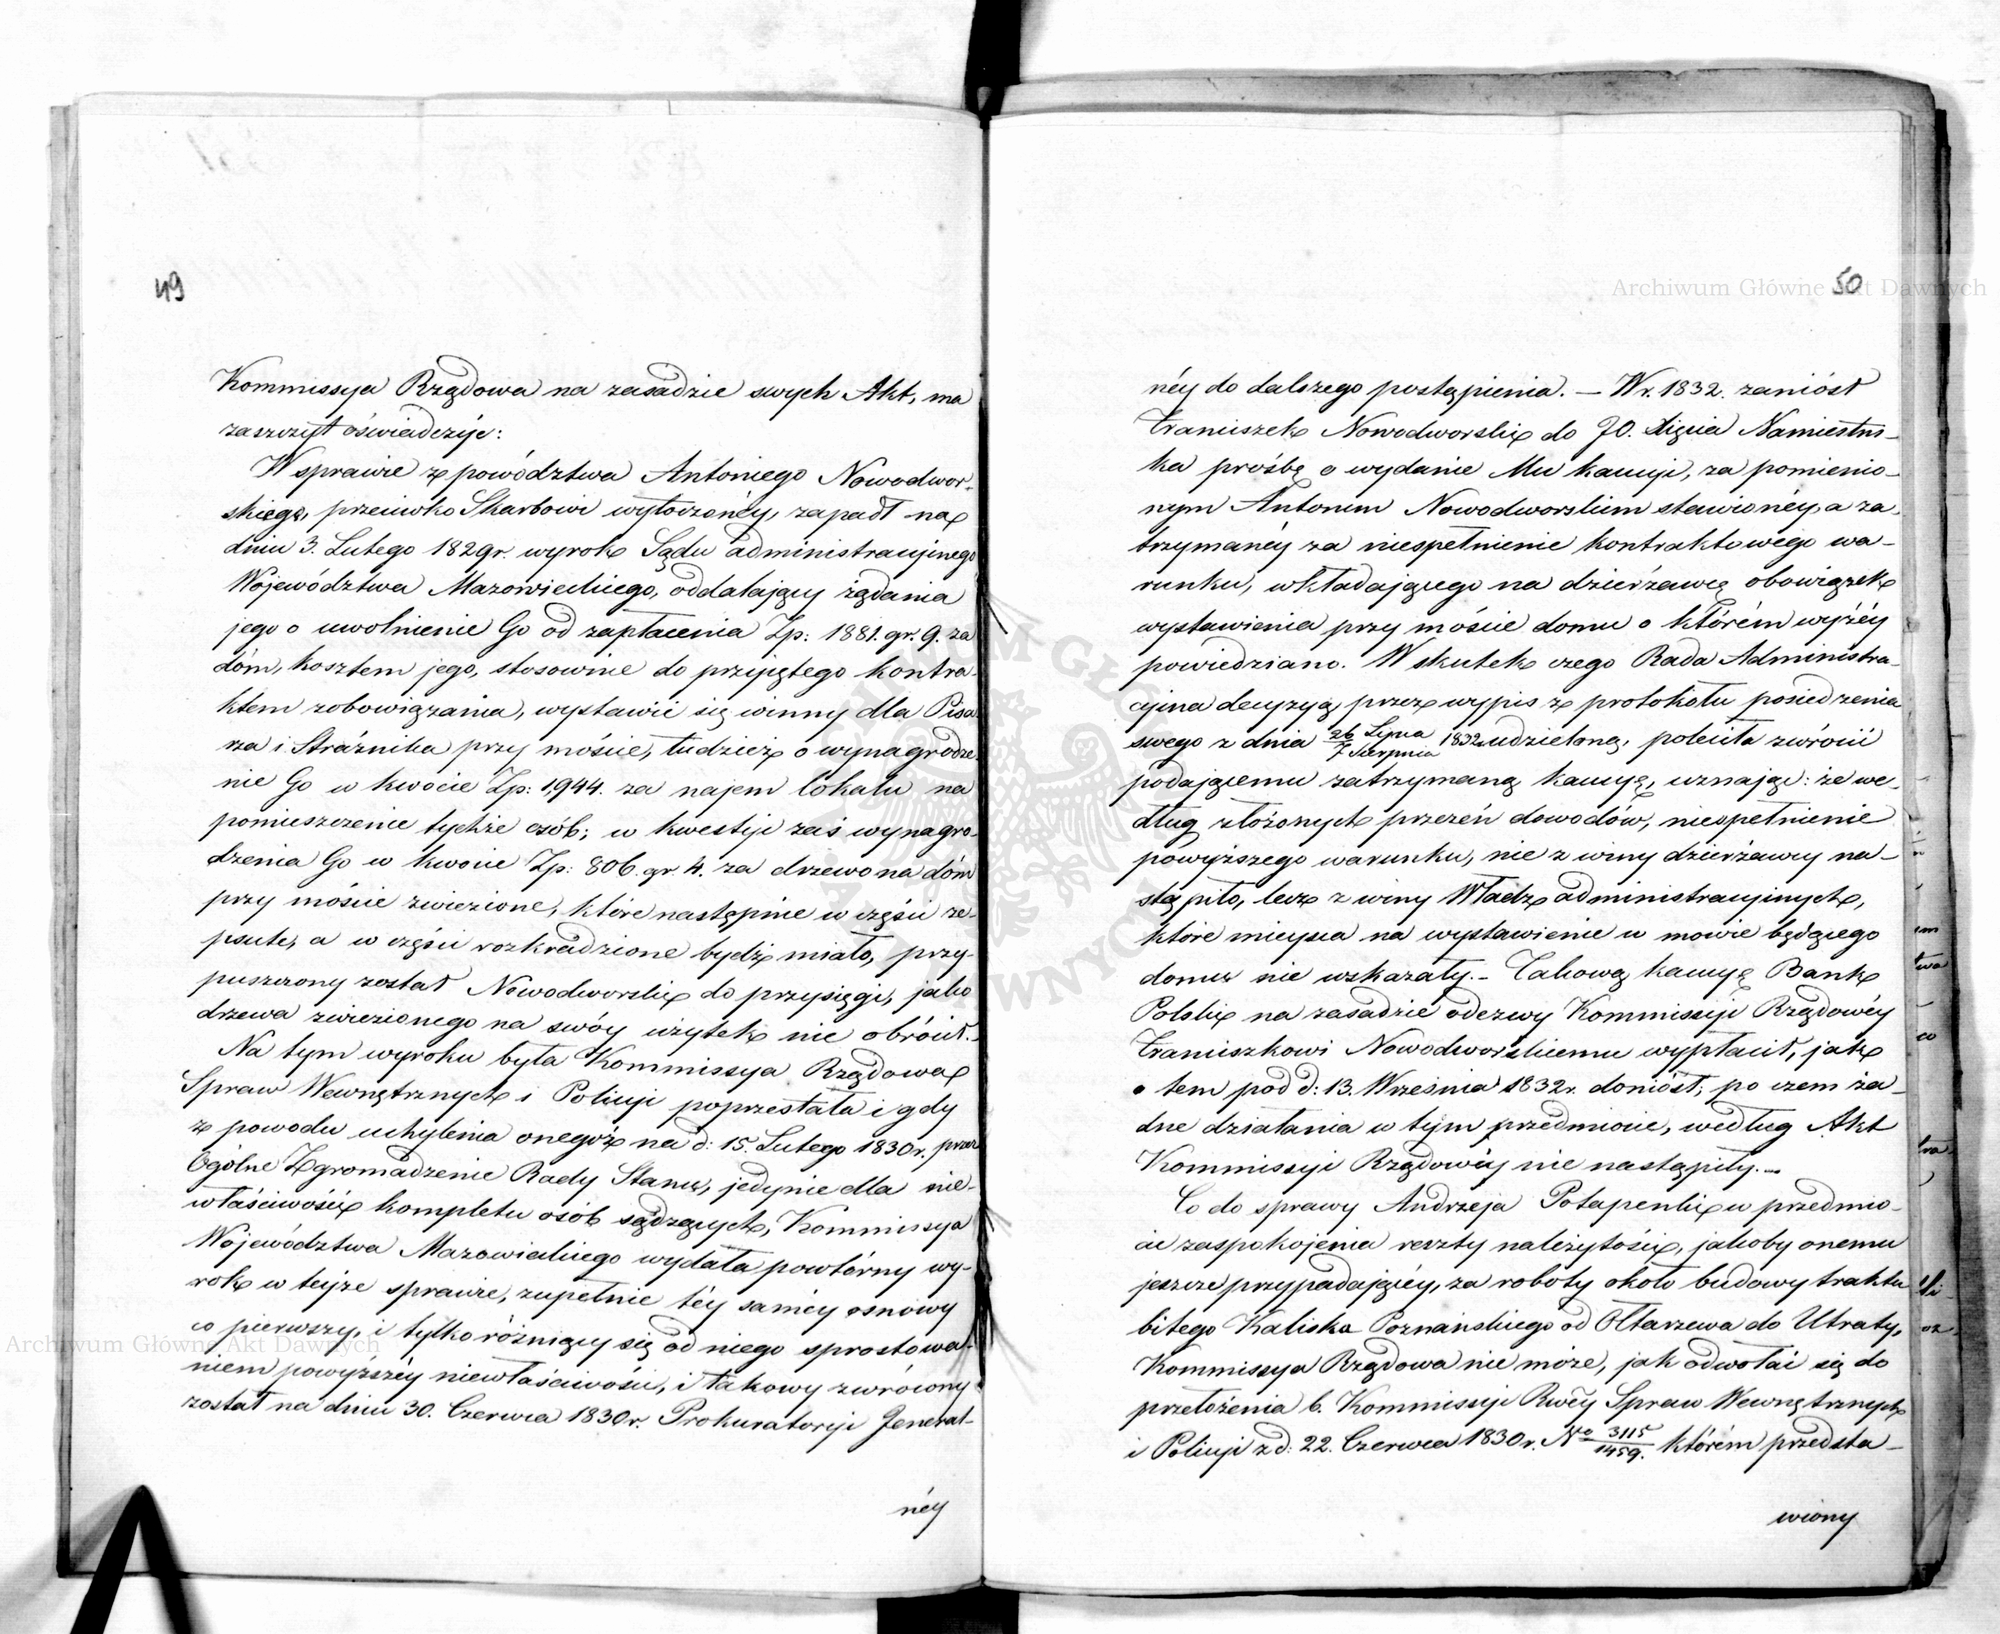 49
Kommissya Rządowa na zasadzie swych Akt, ma
zaszczyt oświadczyć:
W sprawie z powództwa Antoniego Nowodwor-
skiego, przeciwko Skarbowi wytoczonéy, zapadł na
dniu 3. Lutego 1829r. wyrok Sądu administracyinego
Województwa Mazowieckiego, oddalaiący żądania
jego o uwolnienie Go od zapłacenia Zp: 1881. gr. 9. za
dóm, kosztem jego, stosownie do przyjętego kontra-
ktem zobowiązania, wystawić się winny dla Pisa-
rza i Strażnika przy moście, tudzież o wynagrodze-
nie Go w kwocie Zp: 1,944. za najem lokalu na
pomieszczenie tychże osób; w kwestyi zaś wynagro-
dzenia Go w kwocie Zp: 806. gr. 4. za drzewo na dóm
przy moście zwiezione, które następnie w części ze-
psute, a w części rozkradzione bydź miało, przy-
puszczony został Nowodworski do przysięgi, jako
drzewa zwiezionego na swóy użytek nie obrócił.-
Na tym wyroku była Kommissya Rządowa
Spraw Wewnętrznych i Policyi poprzestała i gdy
z powodu uchylenia onegóż na d: 15. Lutego 1830r. przez
Ogólne Zgromadzenie Rady Stanu, jedynie dla nie-
właściwości kompletu osób sądzących, Kommissya
Województwa Mazowieckiego wydała powtórny wy-
rok w teyże sprawie, zupełnie téy saméy osnowy
co pierwszy, i tylko różniący się od niego sprostowa-
niem powyższéy niewłaściwości, i takowy zwrócony
został na dniu 30. Czerwca 1830r. Prokuratoryi Jeneral-
néy
50
néy do dalszego postąpienia. — W r. 1832. zaniósł
Franciszek Nowodworski do JO. Xięcia Namiestni-
ka prośbę o wydanie Mu kaucyi, za pomienio-
nym Antonim Nowodworskim stawionéy, a za-
trzymanéy za niespełnienie kontraktowego wa-
runku, wkładaiącego na dzierżawcę obowiązek
wystawienia przy moście domu o którém wyżéy
powiedziano. W skutek czego Rada Administra-
cyina decyzyą przez wypis z protokołu posiedzenia
swego z dnia 26 Lipca / 7 Sierpnia 1832. udzieloną, poleciła zwrócić
podaiącemu zatrzymaną kaucyę, uznając: że we-
dług złożonych przezeń dowodów, niespełnienie
powyższego warunku, nie z winy dzierżawcy na-
stąpiło, lecz z winy Władz administracyinych,
które mieysca na wystawienie w mowie będącego
domu nie wskazały. - Takową kaucyę Bank
Polski na zasadzie odezwy Kommissyi Rządowéy
Franciszkowi Nowodworskiemu wypłacił, jak
o tem pod d: 13. Września 1832r. doniósł; po czem ża-
dne działania w tym przedmiocie, według Akt
Kommissyi Rządowéy nie nastąpiły. -
Co do sprawy Andrzeja Potapenki w przedmio-
cie zaspokojenia reszty należytości, jakoby onemu
jeszcze przypadającéy, za roboty około budowy traktu
bitego Kalisko Poznańskiego od Ołtarzewa do Utraty,
Kommissya Rządowa nie może, jak odwołać się do
przełożenia b. Kommissyi Rwéy Spraw Wewnętrznych
i Policyi z d: 22. Czerwca 1830r. No 3115/1459. którém przedsta-
wiony
Archiwum Główne Akt Dawnych
Archiwum Główne Akt Dawnych